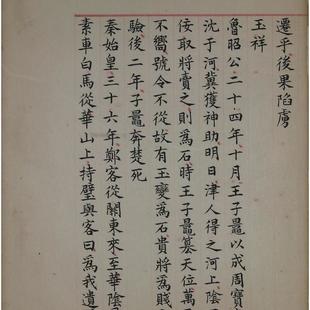 遷乎後果陷虜
玉祥
魯昭公二十四年十月王子鼂以成周寶
沈于河冀獲神助明日津人得之河上陰
佞取將賣之則為石時王子鼂篡天位萬
不嚮號令不從故有玉變為石貴將為賤
驗後二年子鼂奔楚死
秦始皇三十六年鄭客從關東來至華陰
素車白馬從華山上持璧與客曰為我遺